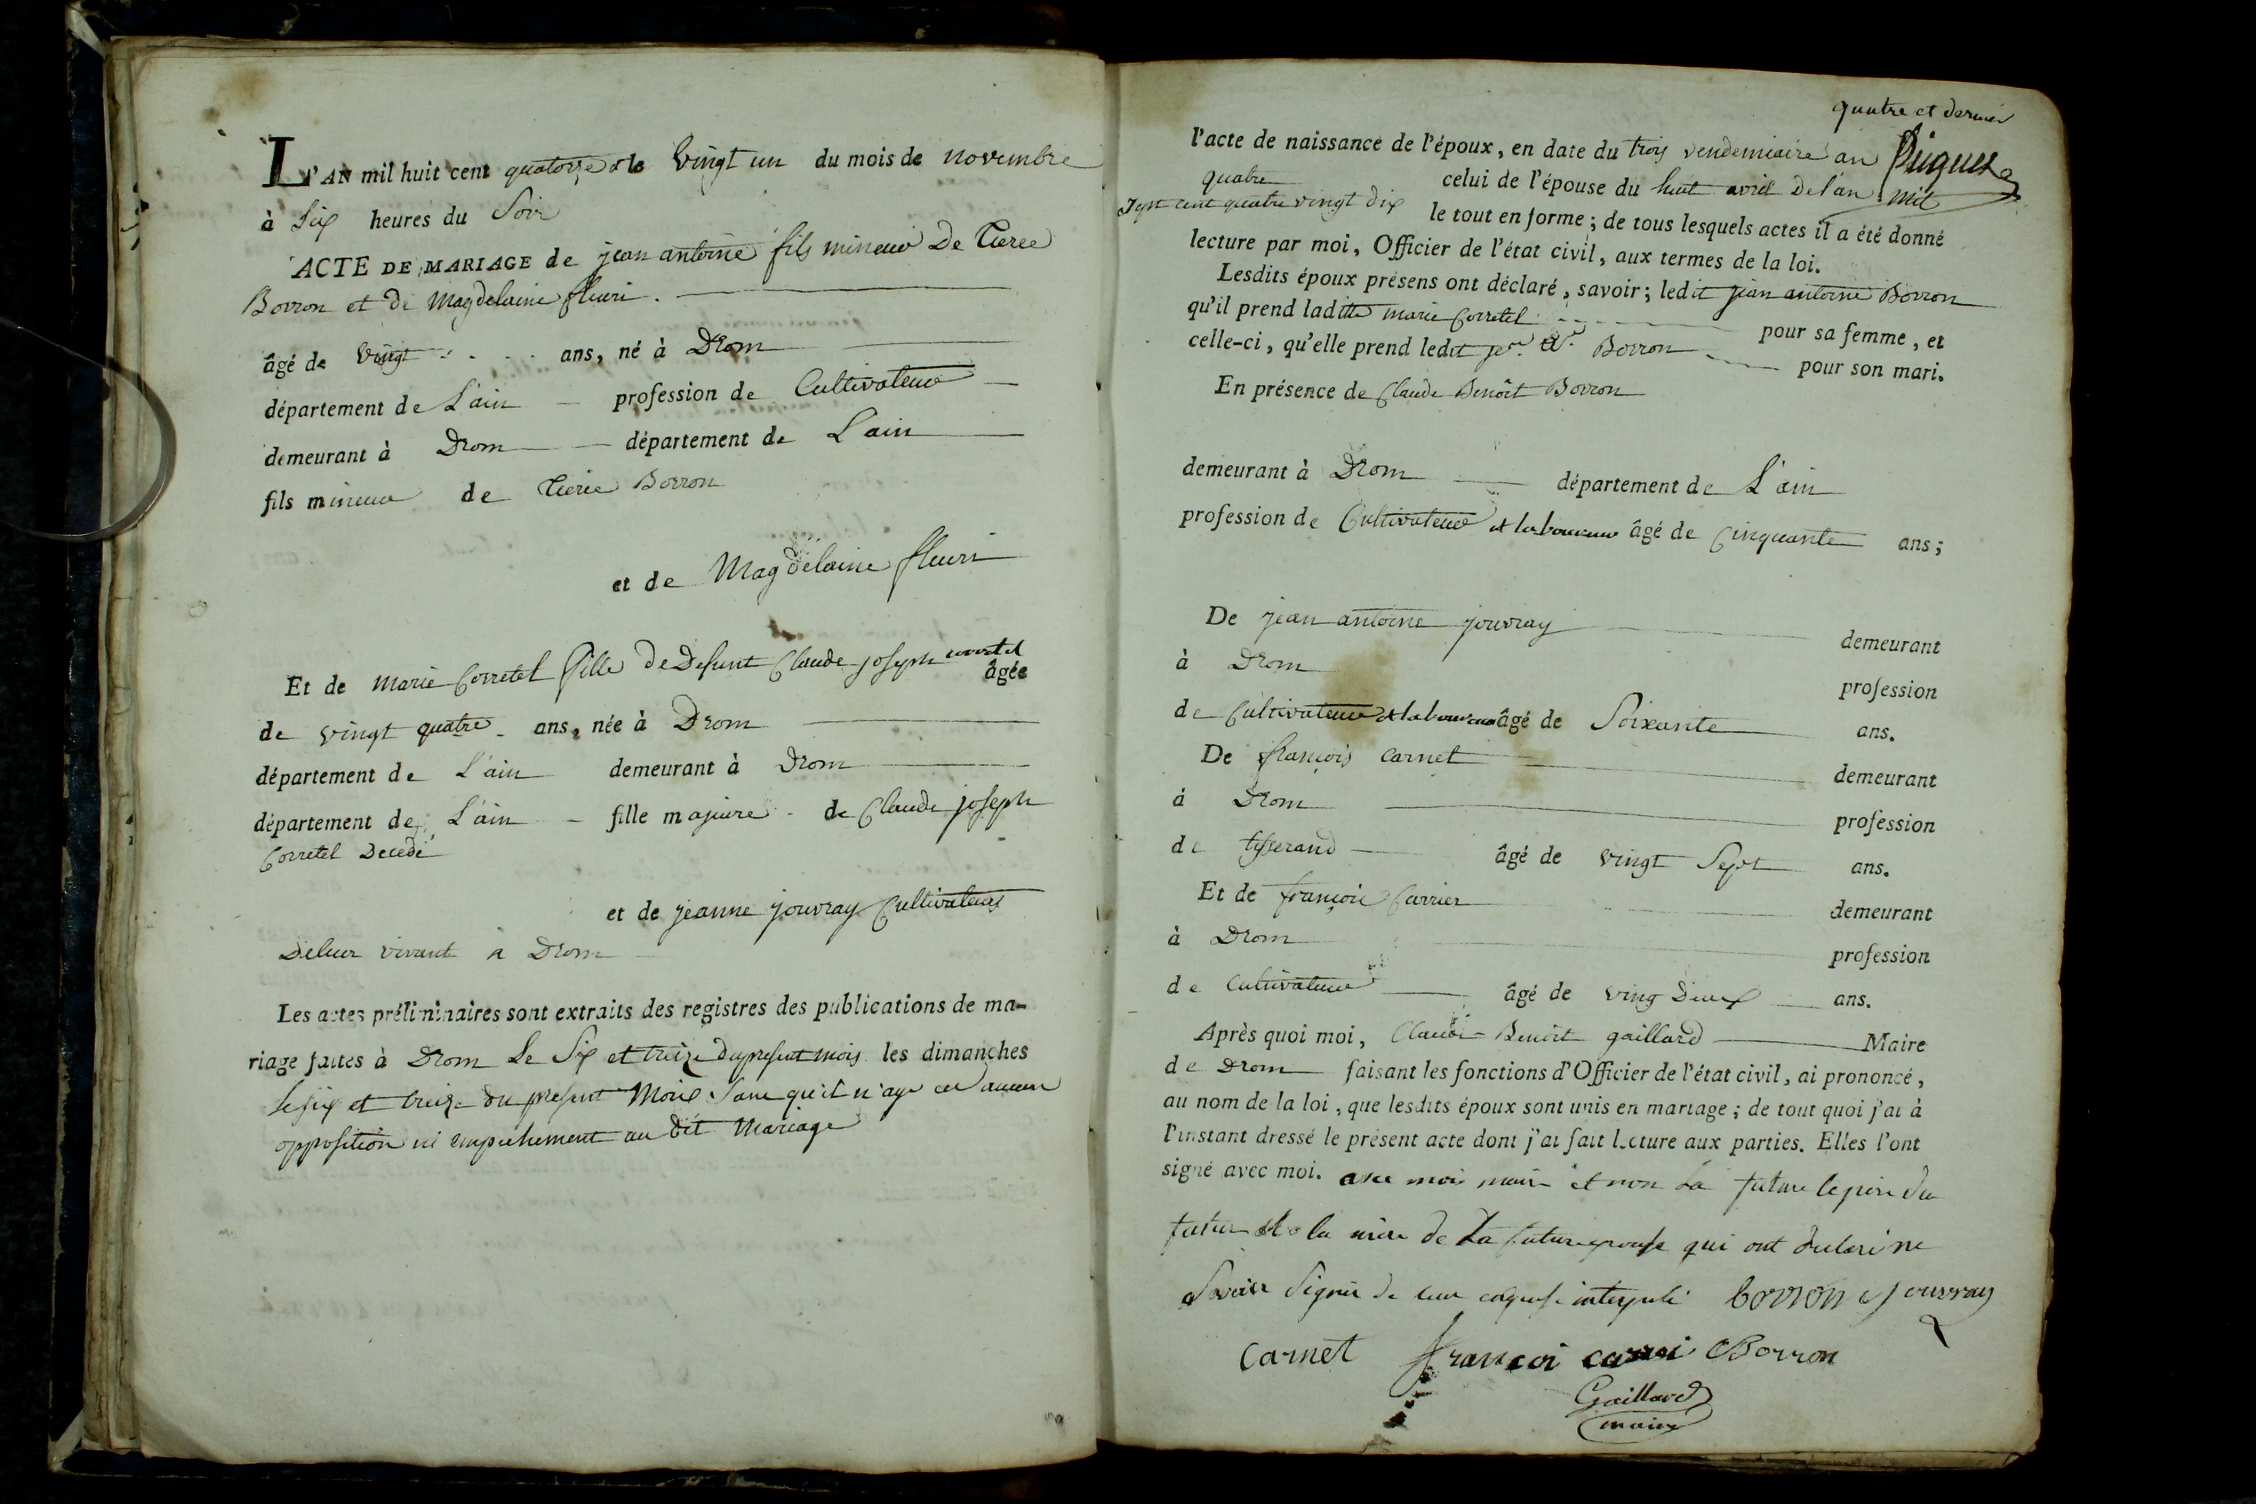 L'AN mil huit cent quatorze & le vingt un du mois de novembre
à Six heures du Soir
ACTE DE MARIAGE de jean antoine fils mineur De Pierre
Borron et de Magdelaine fleuri.
âgé de vingt ans, né à Drom
département de L'ain profession de Cultivateur
demeurant à Drom département de L'ain
fils mineur de Pierre Borron
et de Magdelaine fleuri
Et de marie Corretel fille de Defunt Claude joseph corretel âgée
de vingt quatre ans, née à Drom
département de L'ain demeurant à Drom
département de L'ain fille majeure de Claude joseph
Corretel Decedé
et de jeanne jouvray Cultivateurs
vivant a Drom
Les actes préliminaires sont extraits des registres des publications de ma-
riage faites à Drom Le Six et treize du present mois les dimanches
le six et treize du present Mois sans qu'il n'aye eu aucun
opposition ni empechement au dit Mariage
quatre et dernier
l'acte de naissance de l'époux, en date du trois vendemiaire an
quatre celui de l'épouse du huit avril de l'an mil
sept cent quatre vingt dix le tout en forme; de tous lesquels actes il a été donné
lecture par moi, Officier de l'état civil, aux termes de la loi.
Lesdits époux présens ont déclaré, savoir; ledit jean antoine Borron
qu'il prend laditte marie Corretel pour sa femme, et
celle-ci, qu'elle prend ledit jn. ae. Borron pour son mari.
En présence de Claude Benoît Borron
demeurant à Drom département de L'ain
profession de Cultivateur et laboureur âgé de Cinquante ans;
De jean antoine jouvray demeurant
à Drom profession
de Cultivateur et laboureur âgé de Soixante ans.
De françois Carnet demeurant
à Drom profession
de tisserand âgé de vingt Sept ans.
Et de françois Carrier demeurant
à Drom profession
de Cultivateur âgé de ving Deux ans.
Après quoi moi, Claude Benoit gaillard Maire
de Drom faisant les fonctions d'Officier de l'état civil, ai prononcé,
au nom de la loi, que lesdits époux sont unis en mariage; de tout quoi j'ai à
l'instant dressé le présent acte dont j'ai fait lecture aux parties. Elles l'ont
signé avec moi. avec mois maire et non La future le père du
futur et la mère de La future epouse qui ont declaré ne
Savoir Signer de ce interpelé borron jouvray
Carnet françoi carrei Borron
Gaillard
maire